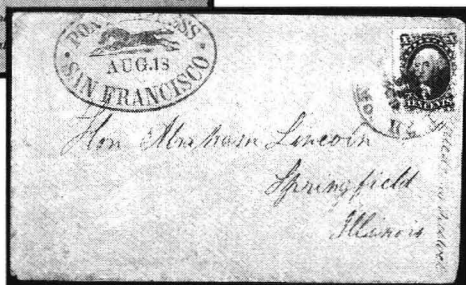 PONY EXPRESS
AUG. 18
SAN FRANCISCO
Hon Abraham Lincoln
Springfield
Illinois